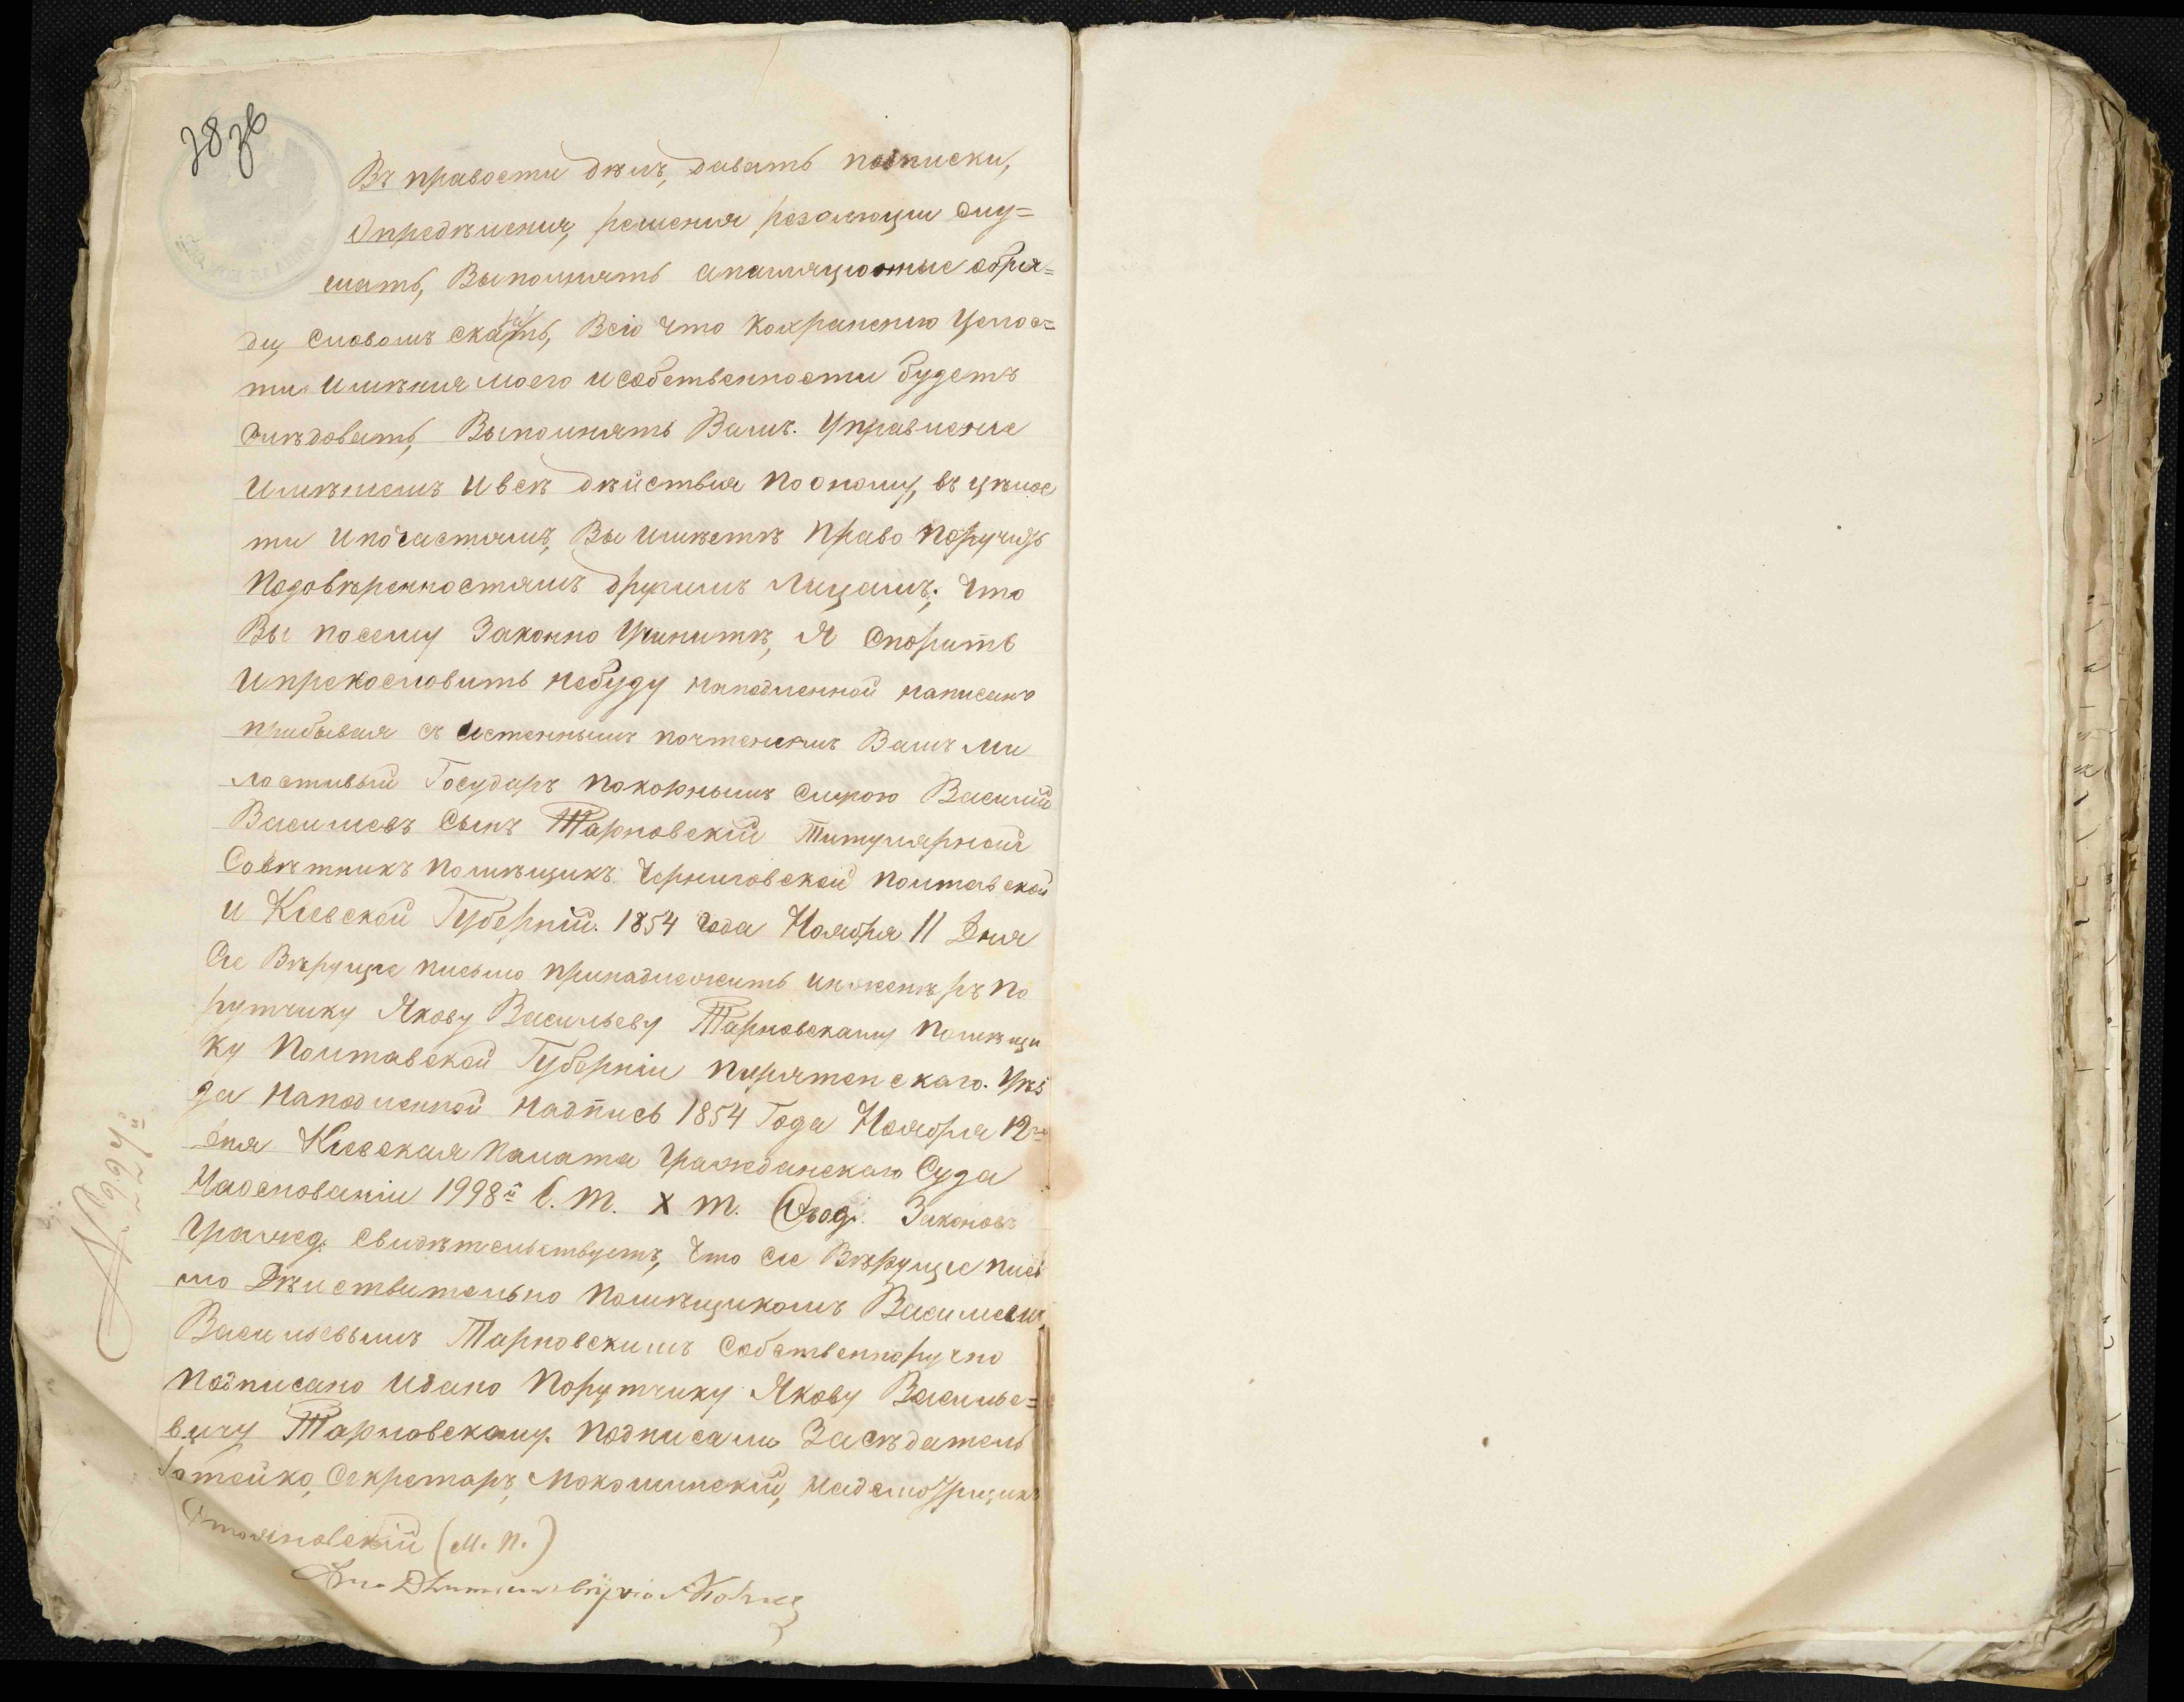 38 зв
Въ правости дѣлъ, давать подписки,
Опредѣления, решения резолюции слу=
шать, Выполнять апаляционые обря=
ды, словомъ сказать, Всіо что Кохранению Целос=
ти имѣния моего и собственности будетъ
слѣдовать, Выполнять Вамъ. Управление
Имѣниемъ И всѣ дѣйствия По оному, въ цѣлос
ти и по частямъ, Вы имѣетѣ Право Поручить
Подовѣренностямъ другимъ Лицамъ; Что
Вы посему Законно Учинитѣ, Я Спорить
И прекословить небуду наподленной написано
прибывая съ истеннымъ почтениемъ Вашъ Ми
лостивый Государъ Покорнымъ слугою Василий
Василиевъ Сынъ Тарновскій Титулярный
Совѣтникъ Помѣщикъ Черниговской Полтавской
и Киевской Губерній. 1854 года Ноября 11 Дня
Сие Вѣрущее письмо принадлежить инженѣръ По
рутчику Якову Васильеву Тарновскому Помѣщи
ку Полтавской Губерніи Пирятенскаго. Уѣз
да Наподленной Надпись 1854 Года Ноября 12го
дня Киевская Палата Гражданскаго Суда
Наоснованіи 1998й С. т. X т. Свод. Законовъ
Гражд. свидѣтельствуетъ, Что сие Вѣрущее пись
мо Дѣиствительно Помѣщикомъ Василиемъ
Васильевымъ Тарновскимъ Собственноручно
Подписано И дано Порутчику Якову Василье=
вичу Тарновскому. Подписали Засѣдатель
Готойко, Секретаръ, Мокошинский, Надсмотрщикъ
Стояновский (М. П.)